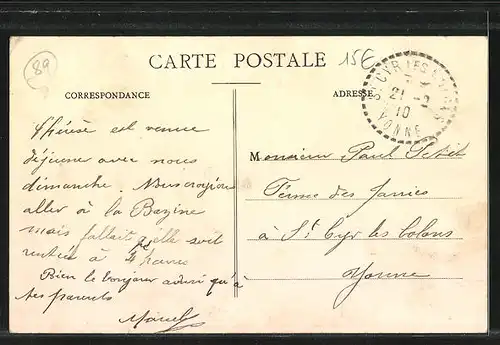 89
CARTE POSTALE
15€
CORRESPONDANCE
ADRESSE
St CYR LES COLONS
21 -2
10
YONNE
Thérèse est venue
déjeuner avec nous
dimanche. Nous croyions
aller à la Bazine
mais fallait qu'elle soit
rentrée à 4 heures
Bien le bonjour aussi qu'à
tes parents
Marcel
Monsieur Paul
Ferme des
à St Cyr les Colons
Yonne